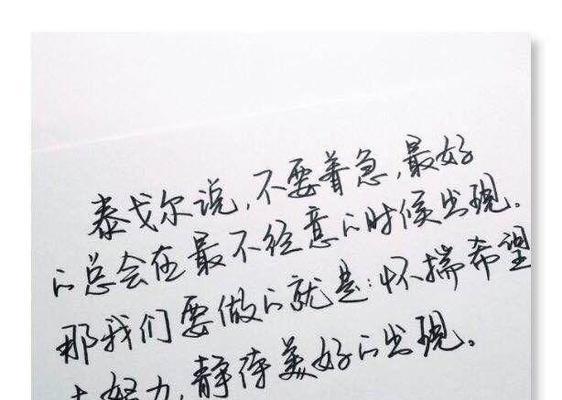 泰戈尔说,不要着急,最好
的总会在最不经意的时候出现。
那我们要做的就是:怀揣希望
去努力,静待美好的出现。